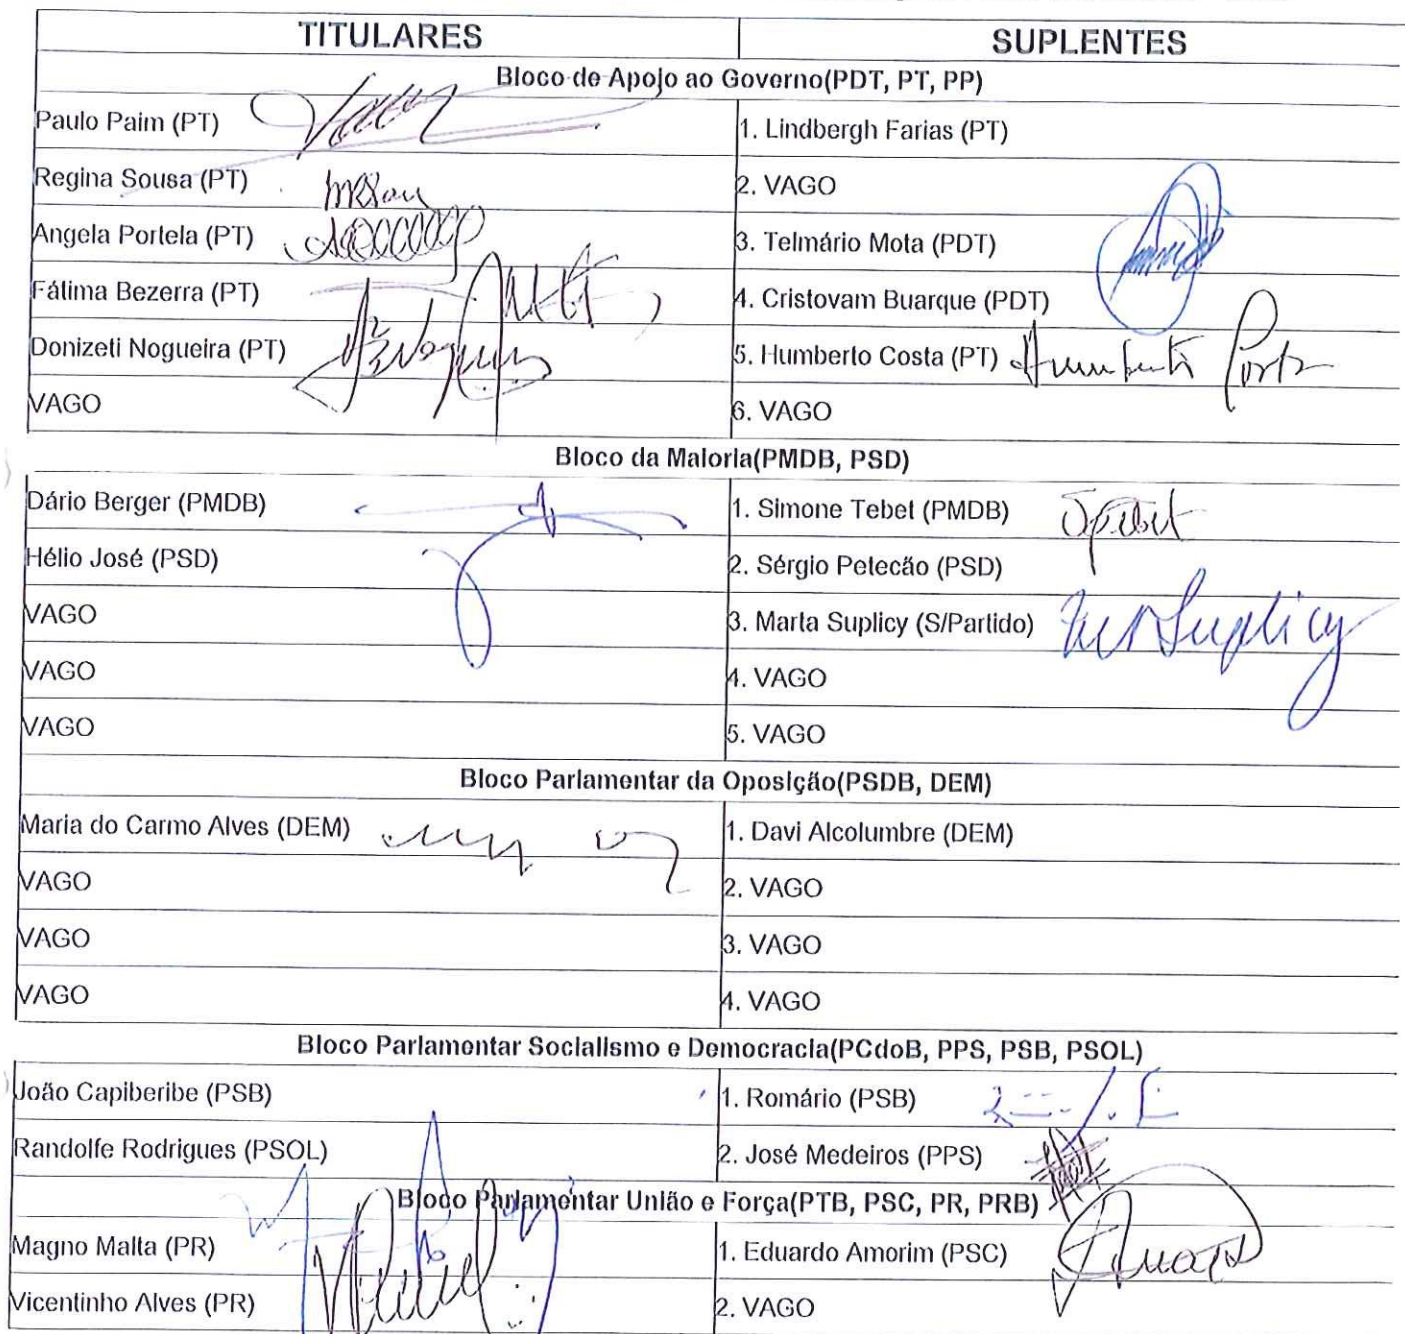 TITULARES SUPLENTES
Bloco de Apoio ao Governo(PDT, PT, PP)
Paulo Paim (PT) 1. Lindbergh Farias (PT)
Regina Sousa (PT) 2. VAGO
Angela Portela (PT) 3. Telmário Mota (PDT)
Fátima Bezerra (PT) 4. Cristovam Buarque (PDT)
Donizeti Nogueira (PT) 5. Humberto Costa (PT) Humberto Costa
VAGO 6. VAGO
Bloco da Maioria(PMDB, PSD)
Dário Berger (PMDB) 1. Simone Tebet (PMDB) STebet
Hélio José (PSD) 2. Sérgio Petecão (PSD)
VAGO 3. Marta Suplicy (S/Partido) Suplicy
VAGO 4. VAGO
VAGO 5. VAGO
Bloco Parlamentar da Oposição(PSDB, DEM)
Maria do Carmo Alves (DEM) 1. Davi Alcolumbre (DEM)
VAGO 2. VAGO
VAGO 3. VAGO
VAGO 4. VAGO
Bloco Parlamentar Socialismo e Democracia(PCdoB, PPS, PSB, PSOL)
João Capiberibe (PSB) 1. Romário (PSB)
Randolfe Rodrigues (PSOL) 2. José Medeiros (PPS)
Bloco Parlamentar União e Força(PTB, PSC, PR, PRB)
Magno Malta (PR) 1. Eduardo Amorim (PSC)
Vicentinho Alves (PR) 2. VAGO